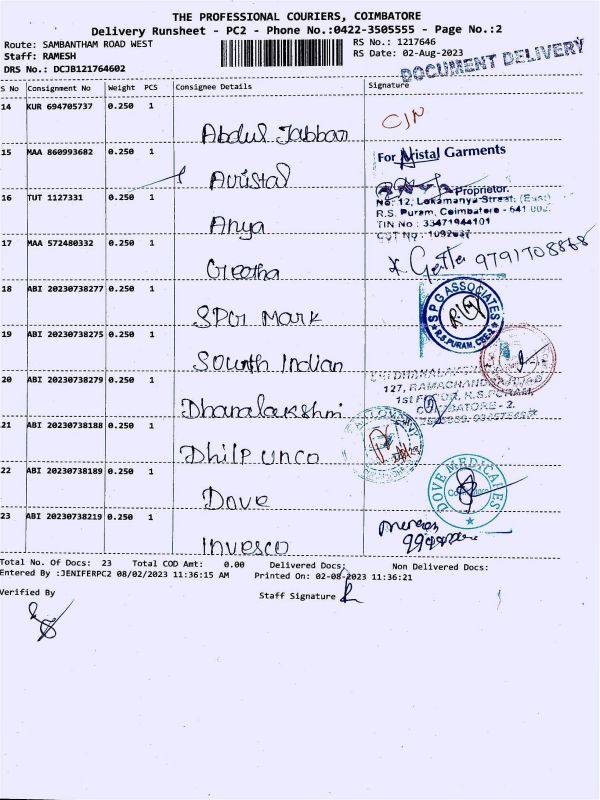 THE PROFESSIONAL COURIERS, COIMBATORE
Delivery Runsheet - PC2 - Phone No.:0422-3505555 - Page No.:2
Route: SAMBANTHAM ROAD WEST RS No.: 1217646
Staff: RAMESH RS Date: 02-Aug-2023
DRS No.: DCJB121764602 DOCUMENT DELIVERY
S No Consignment No Weight PCS Consignee Details Signature
14 KUR 694705737 0.250 1
Abdul Jabbar
15 MAA 860993682 0.250 1 For Avistal Garments
Avistal
16 TUT 1127331 0.250 1 Proprietor.
No: 12, Lokamanya Street, (East)
R.S. Puram, Coimbatore - 641 002.
TIN No : 33471944101
Anya
CST No : 1092
17 MAA 572480332 0.250 1 Geetha 9791708868
Geetha
18 ABI 20230738277 0.250 1 SPG ASSOCIATES
R.S.PURAM, CBE-2
SPG Mark
19 ABI 20230738275 0.250 1
South Indian
20 ABI 20230738279 0.250 1 DHANALAKSHMI
127, RAMACHANDRA ROAD
1st FLOOR, R.S.PURAM,
COIMBATORE - 2.
Dhanalakshmi
21 ABI 20230738188 0.250 1
Dhilp Unco
22 ABI 20230738189 0.250 1 DOVE MEDICARES
Dove
23 ABI 20230738219 0.250 1
Invesco
Total No. Of Docs: 23 Total COD Amt: 0.00 Delivered Docs: Non Delivered Docs:
Entered By :JENIFERPC2 08/02/2023 11:36:15 AM Printed On: 02-08-2023 11:36:21
Verified By Staff Signature